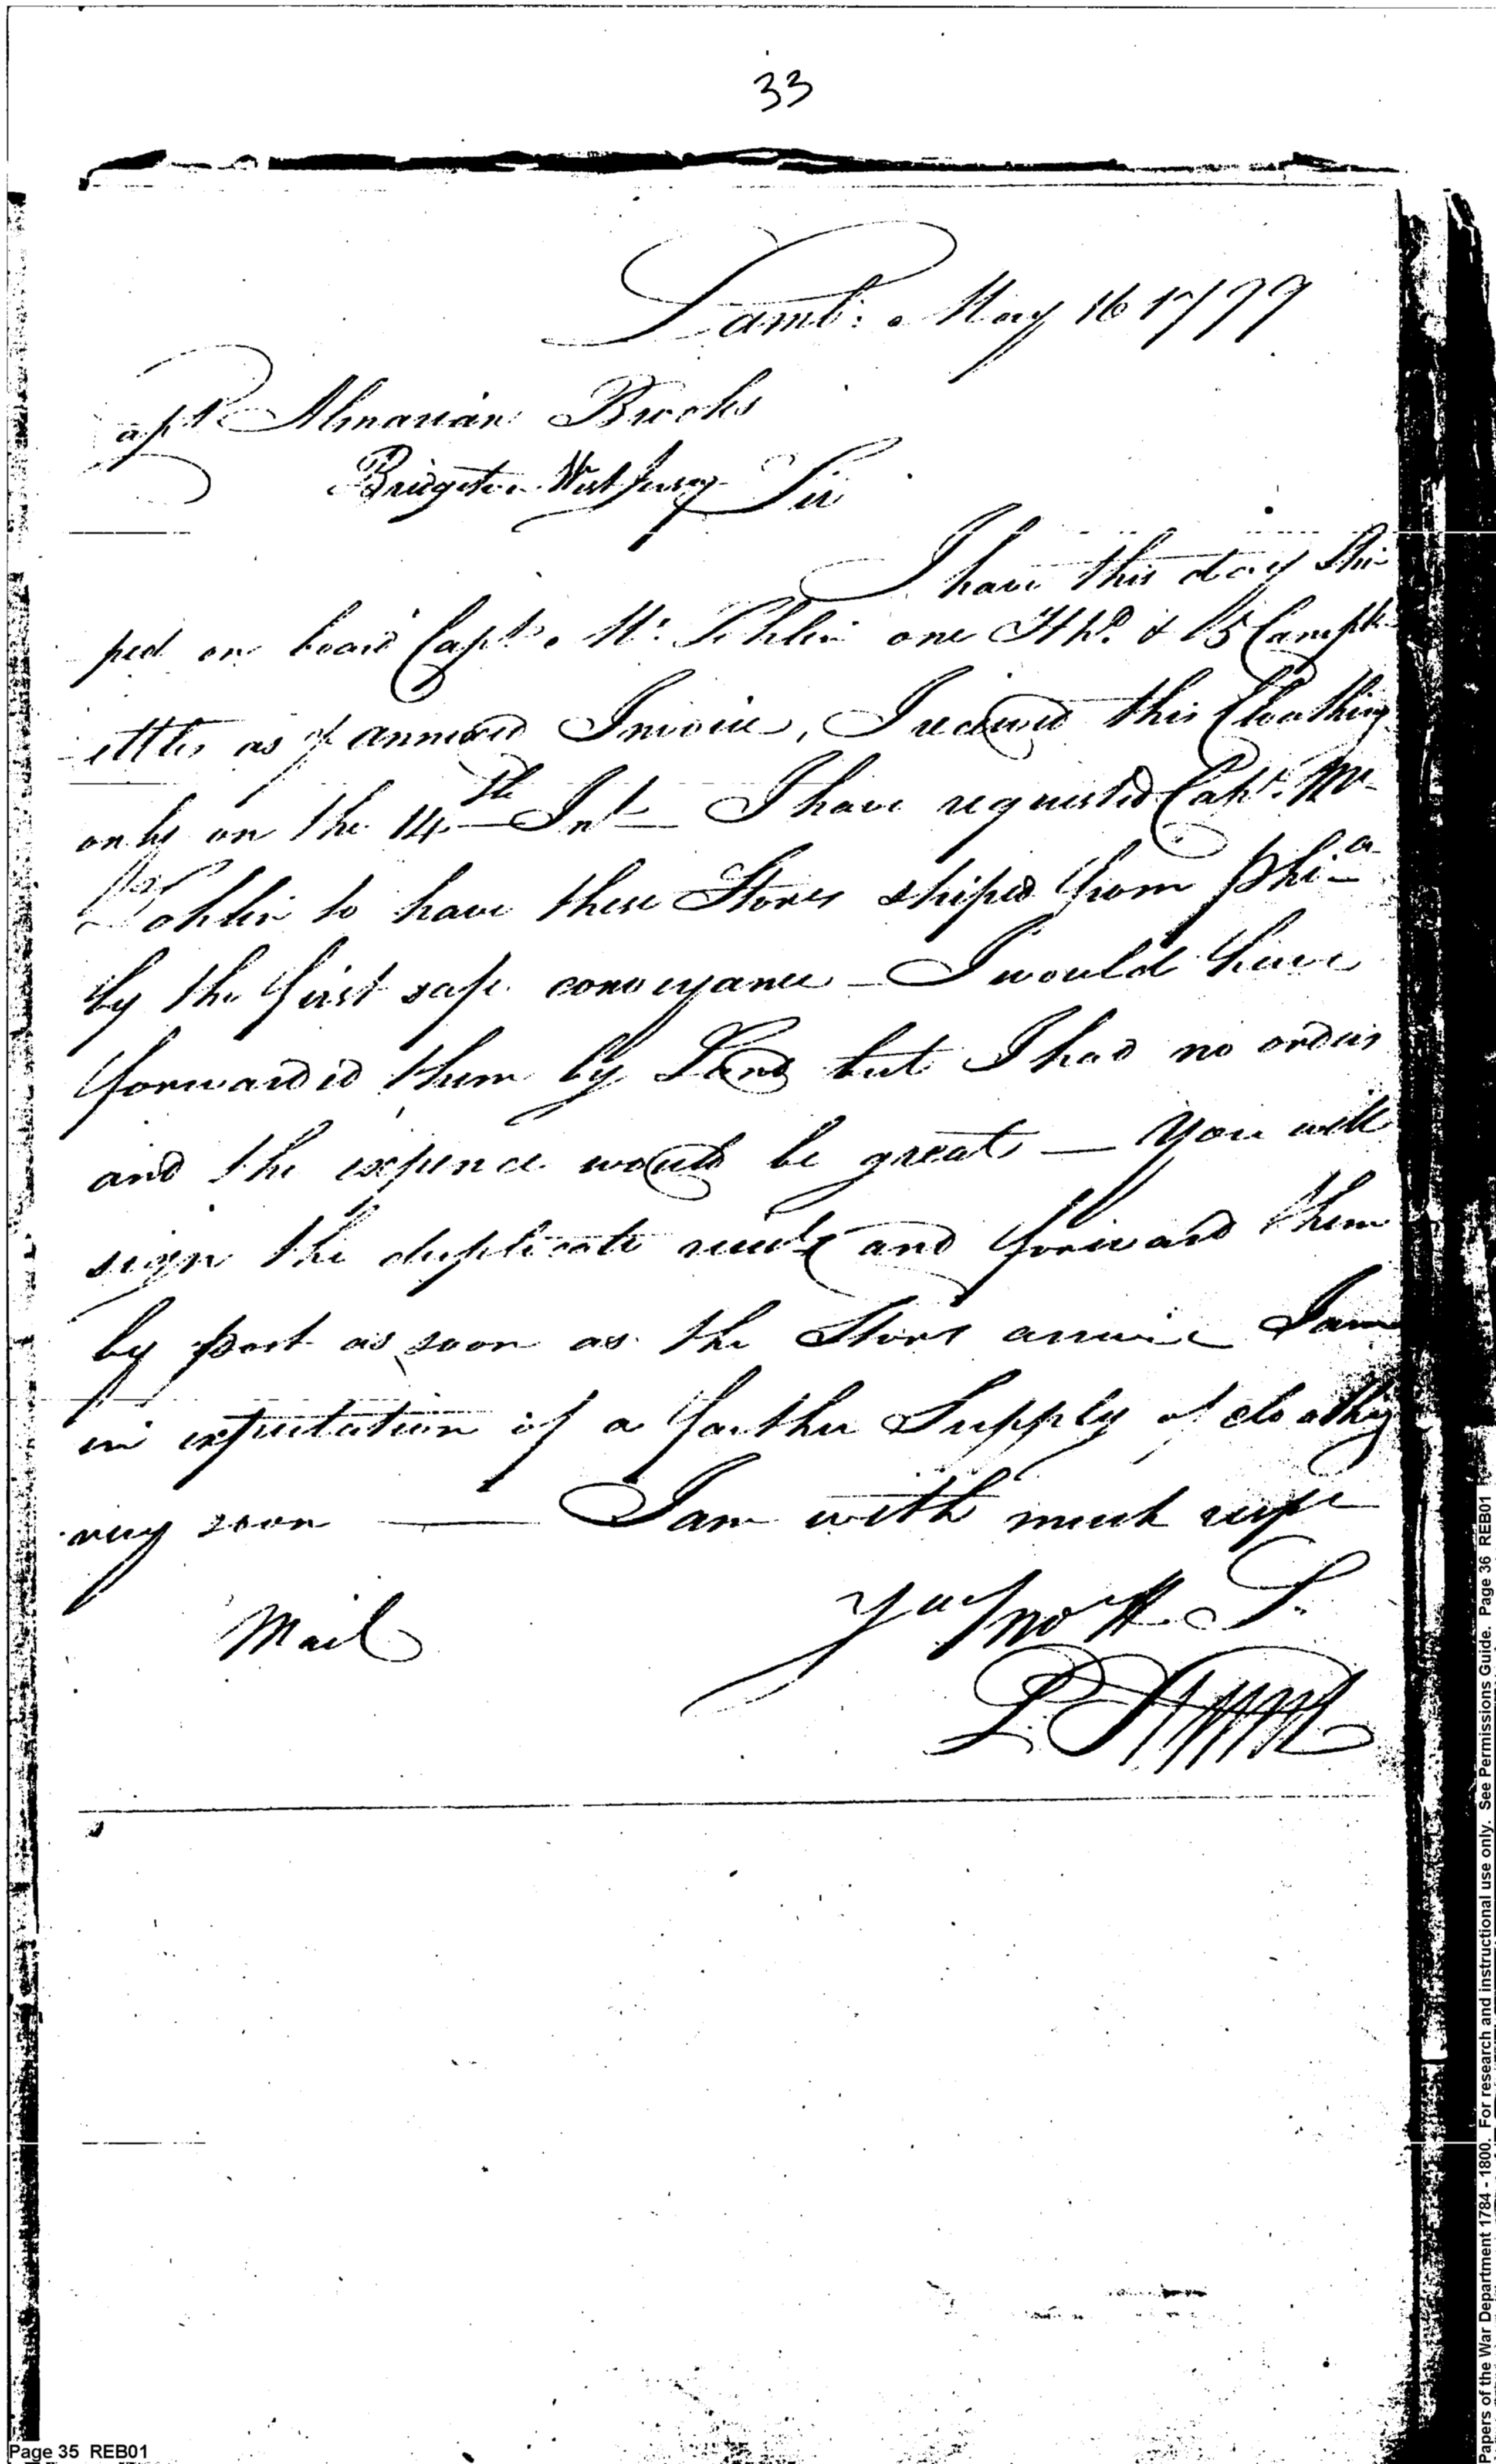 33
Lamb: May 16 1799
apt Almarian Brooks
Bridgeton West Jersey Sir
I have this day Ship
ped on board Capt. Mc one Hhd. & 15 Camp k
ettles as pr annexed Invoice, I received this Cloathing
only on the 14th Int I have requested Capt. Mc
to have these Stores shiped from Phia
by the first safe conveyance - I would have
forwarded them by Land but I had no orders
and the expence would be great — You will
sign the duplicate and forward them
by post as soon as the Stors arrive I am
in expectation of a farther Supply of cloathing
very soon — I am with much resp
Mail yr mo H. S.
Page 35 REB01
Papers of the War Department 1784 - 1800. For research and instructional use only. See Permissions Guide. Page 36 REB01